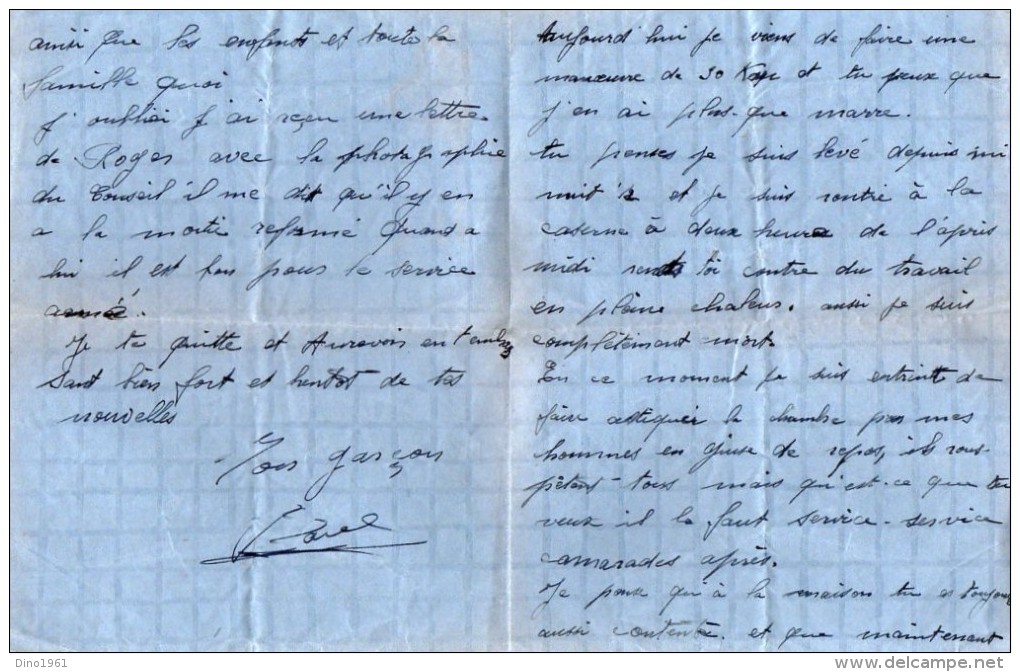 ainsi que les enfants et toute la
famille quoi
j'oubliai j'ai reçu une lettre
de Roger avec la photographie
du Conseil il me dit qu'il y en
a la moitié reformé Quand a
lui il est bon pour le service
armé.
Je te quitte et Aurevoir en t'embras
sant bien fort et bientot de tes
nouvelles
Ton garçon
Aujourd'hui je viens de faire une
manœuvre de 30 Km et tu peux que
j'en ai plus-que marre.
tu penses je suis levé depuis mi
nuit et je suis rentré à la
caserne à deux heure de l'après
midi rends toi contre du travail
en pleine chaleur. aussi je suis
complètement mort.
En ce moment je suis entrint de
faire astiquer la chambre par mes
hommes en guise de repos, ils rous-
pètent tous mais qu'est-ce que tu
veux il le faut service-service
camarades après.
Je pense qu'à la maison tu es toujour
aussi contente. et que maintenant
Dino1961
www.delcampe.net